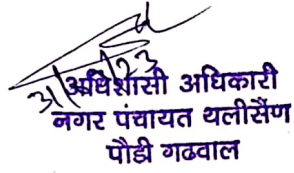 31/1/23
अधिशासी अधिकारी
नगर पंचायत थलीसैण
पौडी गढवाल